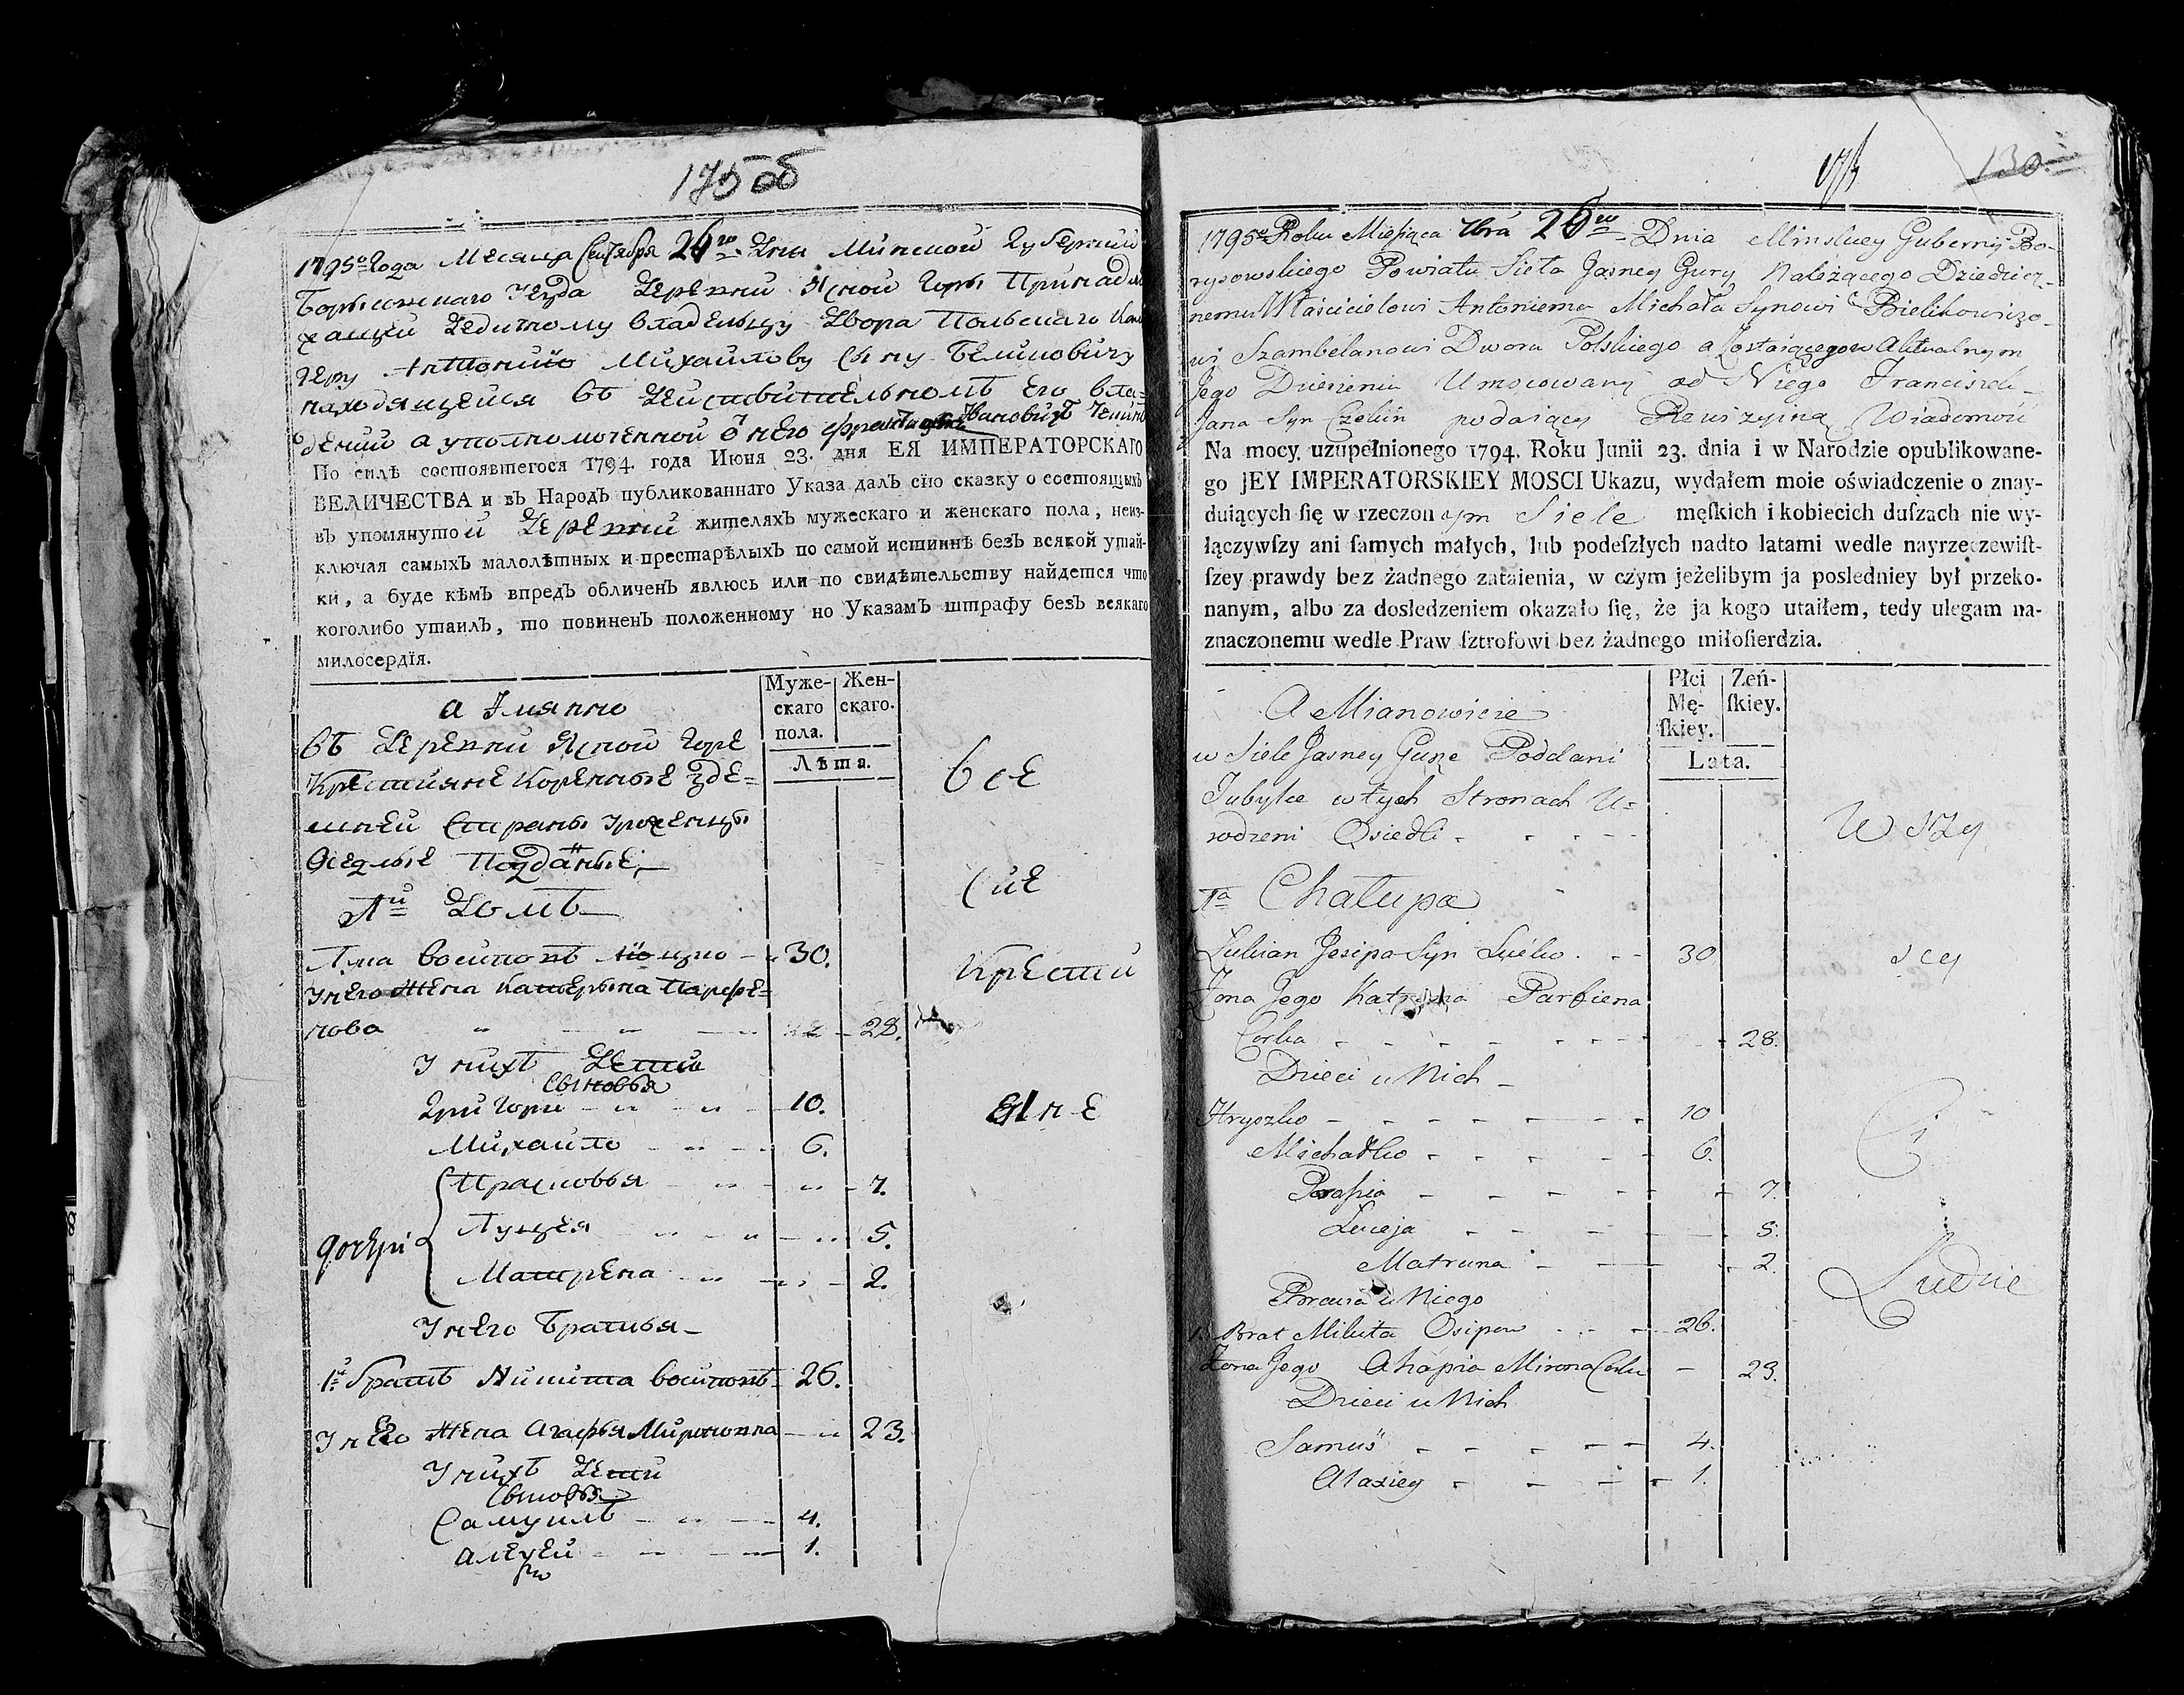 175 об
1795го Года Месяца Сентября 26го Дня Минской Губернии
Борысовскаго Уезда Деревни Ясной Горы Принадле
жащей Дедичному владельцу Двора Польскаго Кам
геру Антонию Михайлову Сыну Беликовичу
находящейся въ действительномъ его вла=
дении а уполномоченной от него Францишекъ Ивановичъ
По силѣ состоявшегося 1794. года Июня 23. дня ЕЯ ИМПЕРАТОРСКАГО
ВЕЛИЧЕСТВА и въ Народѣ публикованнаго Указа далъ сїю сказку о состоящихъ
въ упомянутой Деревни жителяхъ мужескаго и женскаго пола, неиз-
ключая самыхъ малолѣтныхъ и престарѣлыхъ по самой истиннѣ безъ всякой утай-
ки, а буде кѣмъ впредъ обличенъ явлюсь или по свидѣтельству найдется что
коголибо утаилъ, то повиненъ положенному по Указамъ штрафу безъ всякаго
милосердїя.
а Имянно
Муже-
скаго
пола.
Жен-
скаго.
Лѣта.
въ Деревни Ясной Горе
Крестияне коренные зде=
шней Страны уроженцы
Оседлые Подданые
1й Домъ
30.
У него жена Катерына Парфе=
нова 28.
У нихъ Дети
Сыновья
Григори 10.
Михайло 6.
дочери
Прасковья 7.
Луцея 5.
Матрена 2.
У него Братья
1й братъ Микита Восиповъ 26.
У него жена Агафья Мироновна 23.
У нихъ Дети
Сыновья
Самуилъ 4.
Алексей 1.
все
сие
Крести
яне
130.
1795o Roku Miesiąca 7bra 26go Dnia Minskiey Gubernij Bo-
rysowskiego Powiatu Sieła Jasney Gury Należącego Dziedzicz-
nemu Właścicielowi Antoniemu Michała Synowi Bielikowiczo-
wi Szambelanowi Dworu Polskiego a zostaiącego w Aktualnym
Jego Dzierżeniu Umocowany od Niego Franciszek
Jana Syn podaiący Rewizyiną Wiadomość
Na mocy uzupełnionego 1794. Roku Junii 23. dnia i w Narodzie opublikowane-
go JEY IMPERATORSKIEY MOSCI Ukazu, wydałem moie oświadczenie o znay-
duiących ſię w rzeczonym Siele męſkich i kobiecich duſzach nie wy-
łączywſzy ani ſamych małych, lub podeſzłych nadto latami wedle nayrzeczewiſt-
ſzey prawdy bez żadnego zataienia, w czym jeżelibym ja posledniey był przeko-
nanym, albo za dosledzeniem okazało ſię, że ja kogo utaiłem, tedy ulegam na-
znaczonemu wedle Praw ſztrofowi bez żadnego miłoſierdzia.
A Mianowicie
Płci
Mę-
ſkiey.
Zeń-
ſkiey.
Lata.
w Siele Jasney Gurze Poddani
w tych Stronach U=
rodzeni Osiedli
1a Chałupa
Łukian Josipa Syn 30
Zona Jego Katryna Parfiena
Corka 28.
Dzieci u Nich
Hryszko 10
Michałko 6.
Parasia 7.
Łuceja 5.
Matruna 2.
Bracia u Niego
1. Brat Mikita Osipow 26.
Zona Jego Ahapia Mirona Corka 23.
Dzieci u Nich
Samuś 4.
Alaxiey 1.
Wszy
scy
Ci
Ludzie